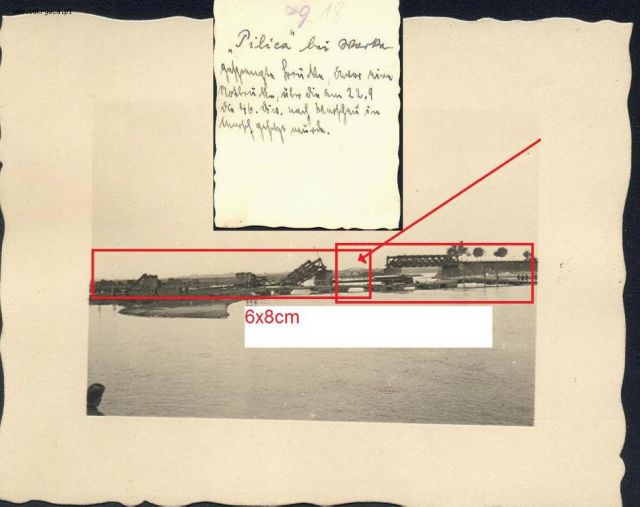 29 18
„Pilica“ bei Warka
gesprengte Brücke, davor eine
Notbrücke, über die am 22.9
die 46. Div. nach Warschau in
Marsch gesetzt wurde.
6x8cm